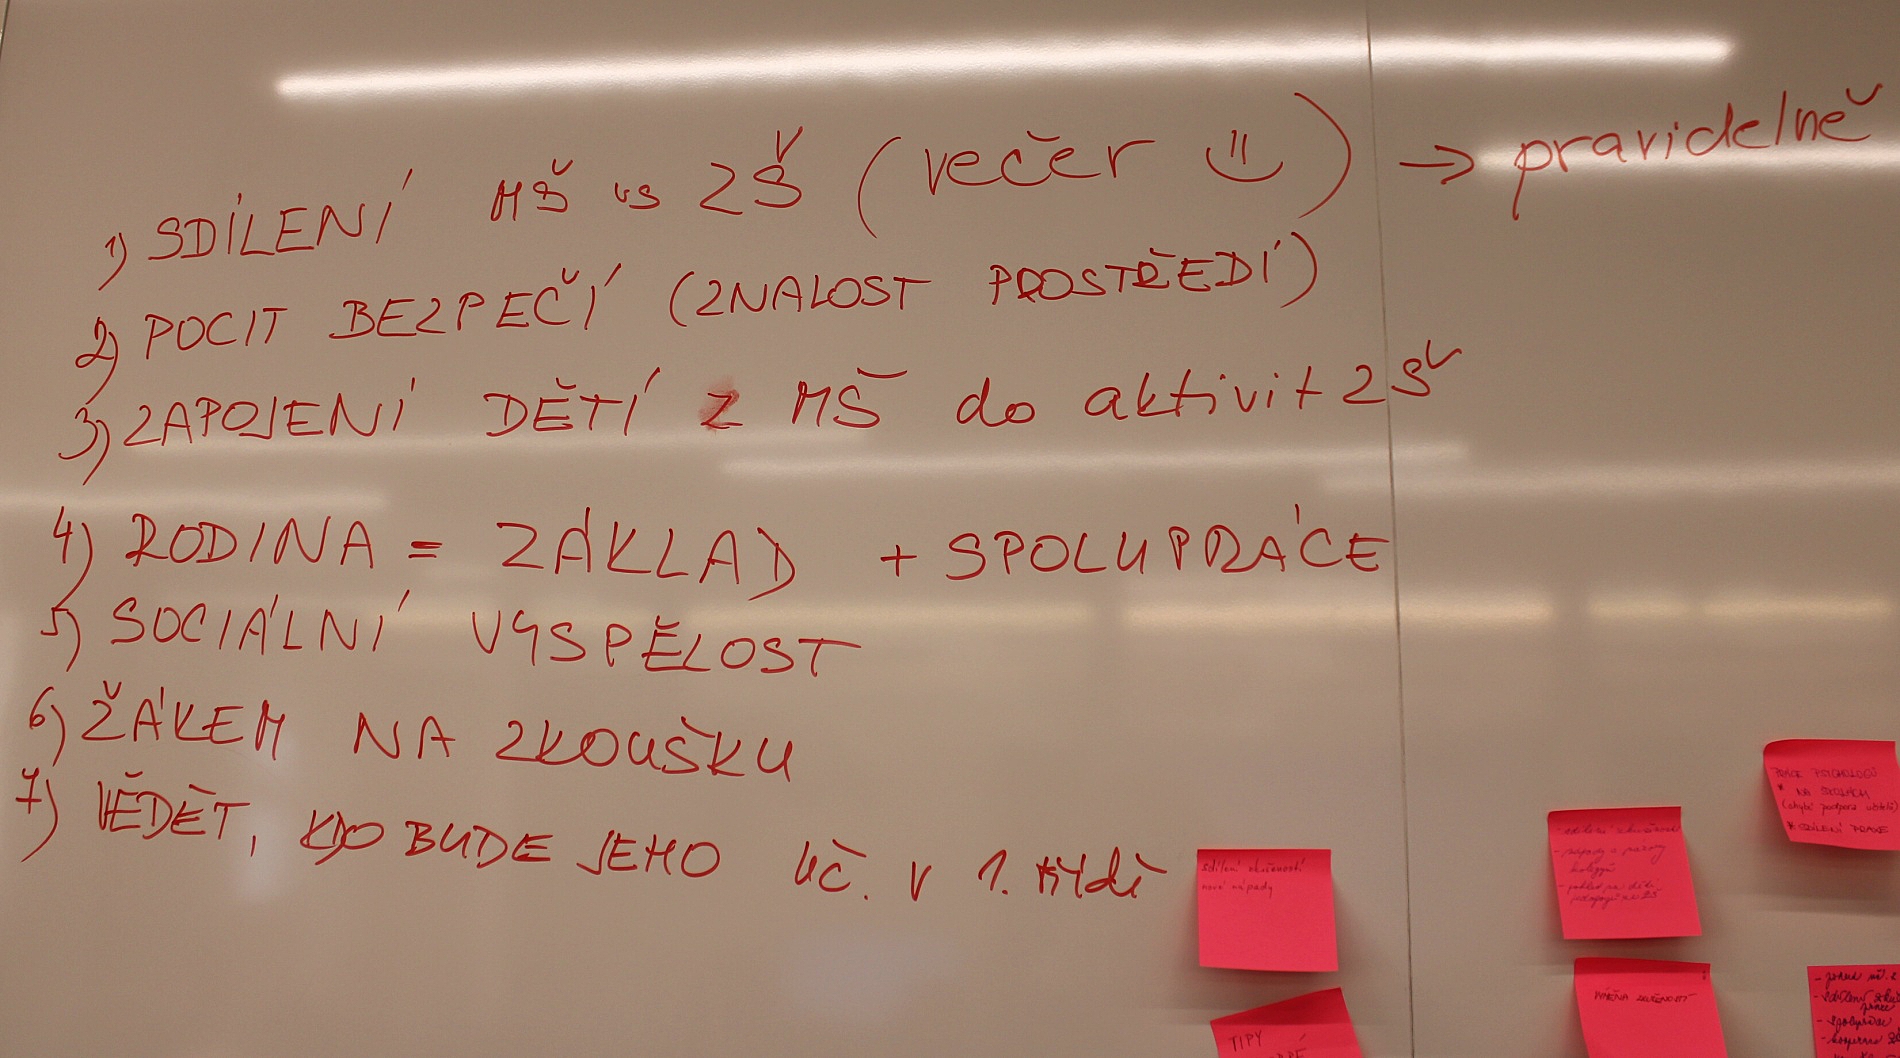 1) SDÍLENÍ MŠ vs ZŠ (večer) → pravidelně
2) POCIT BEZPEČÍ (ZNALOST PROSTŘEDÍ)
3) ZAPOJENÍ DĚTÍ Z MŠ do aktivit ZŠ
4) RODINA = ZÁKLAD + SPOLUPRÁCE
5) SOCIÁLNÍ VYSPĚLOST
6) ŽÁKEM NA ZKOUŠKU
7) VĚDĚT, KDO BUDE JEHO uč. v 1. třídě
sdílení zkušeností
nové nápady
TIPY
- nápady a názory
kolegyň
- pohled na děti
VÝMĚNA ZKUŠENOSTÍ
PRÁCE PSYCHOLOGŮ
* NA ŠKOLÁCH
(chybí podpora učitelů)
* SDÍLENÍ PRAXE